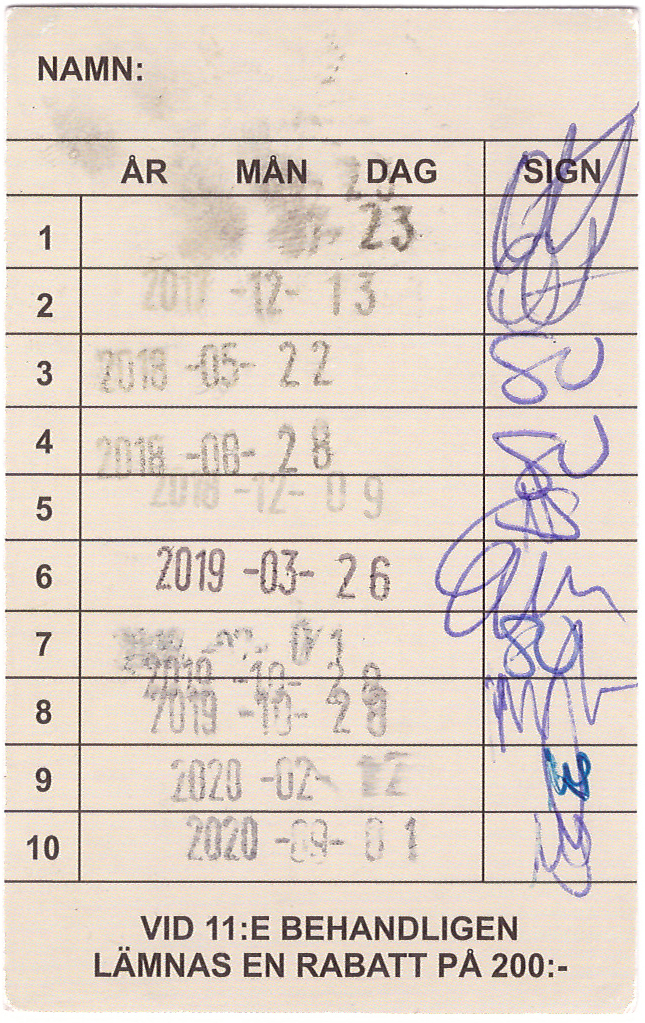 NAMN:
ÅR MÅN DAG SIGN
1 23
2 2017 -12- 13
3 2018 -05- 22 SU
4 2018 -08- 28 SU
5 2018 -12- 09
6 2019 -03- 26
7 01
2019 -10- 28
8 2019 -10- 28
9 2020 -02- 12
10 2020 -09- 01
VID 11:E BEHANDLIGEN
LÄMNAS EN RABATT PÅ 200:-